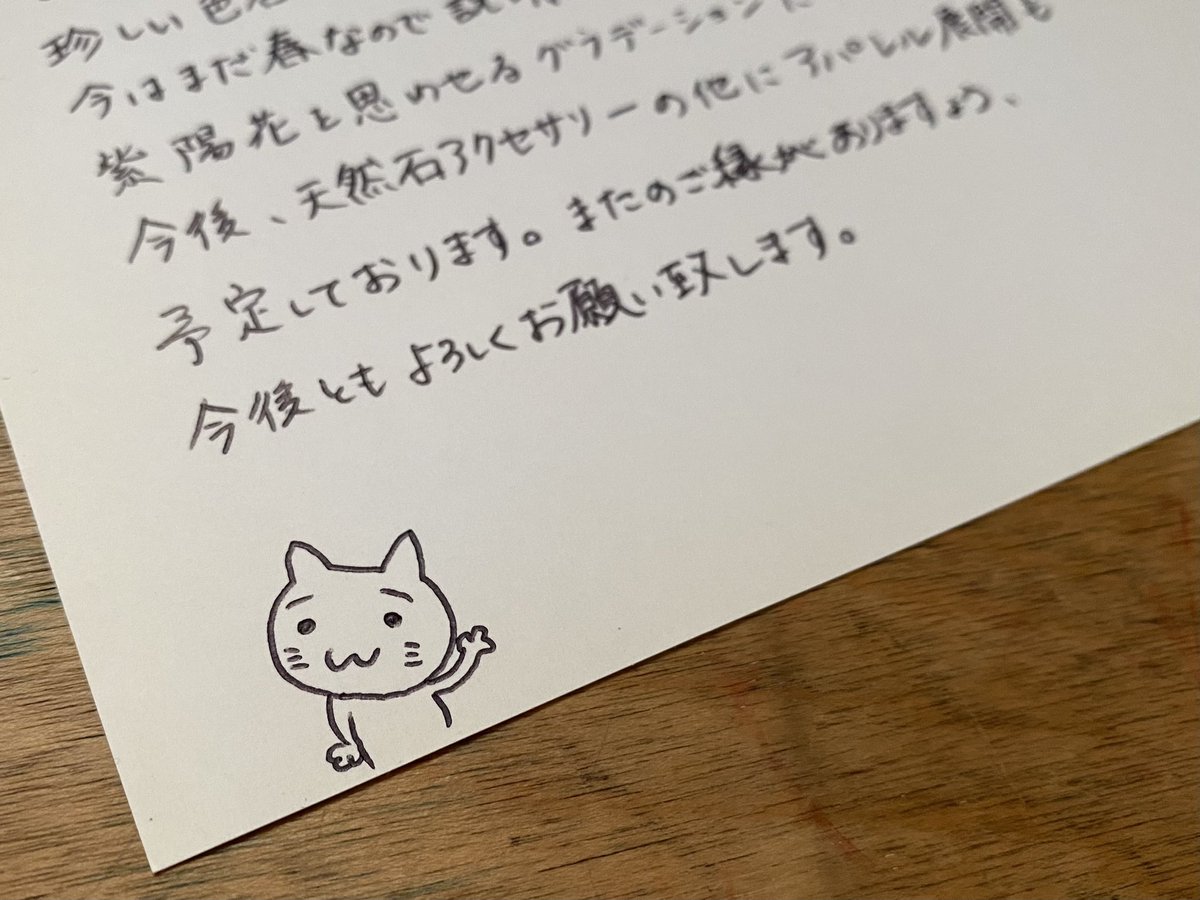 珍しい色
今はまだ春なので
紫陽花を思わせるグラデーション
今後、天然石アクセサリーの他にアパレル展開も
予定しております。またのご縁がありますよう、
今後ともよろしくお願い致します。